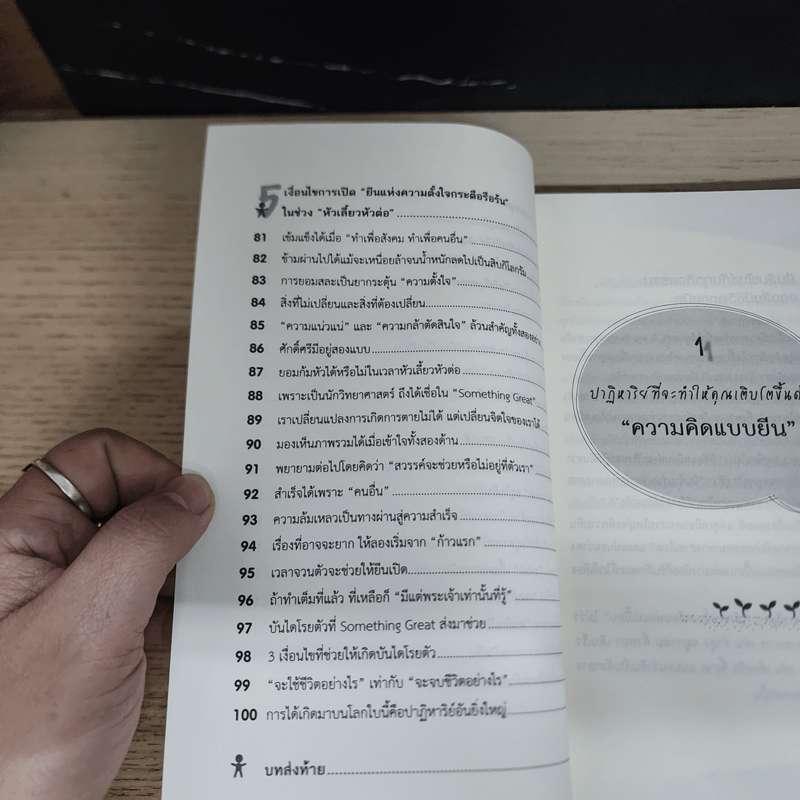 5 เงื่อนไขการเปิด “ยีนแห่งความตั้งใจกระตือรือร้น”
ในช่วง “หัวเลี้ยวหัวต่อ”
81 เข้มแข็งได้เมื่อ “ทำเพื่อสังคม ทำเพื่อคนอื่น”
82 ข้ามผ่านไปได้แม้จะเหนื่อยล้าจนน้ำหนักลดไปเป็นสิบกิโลกรัม
83 การยอมสละเป็นยากระตุ้น “ความตั้งใจ”
84 สิ่งที่ไม่เปลี่ยนและสิ่งที่ต้องเปลี่ยน
85 “ความแน่วแน่” และ “ความกล้าตัดสินใจ” ล้วนสำคัญทั้งสองอย่าง
86 ศักดิ์ศรีมีอยู่สองแบบ
87 ยอมก้มหัวได้หรือไม่ในเวลาหัวเลี้ยวหัวต่อ
88 เพราะเป็นนักวิทยาศาสตร์ ถึงได้เชื่อใน “Something Great”
89 เราเปลี่ยนแปลงการเกิดการตายไม่ได้ แต่เปลี่ยนจิตใจของเราได้
90 มองเห็นภาพรวมได้เมื่อเข้าใจทั้งสองด้าน
91 พยายามต่อไปโดยคิดว่า “สวรรค์จะช่วยหรือไม่อยู่ที่ตัวเรา”
92 สำเร็จได้เพราะ “คนอื่น”
93 ความล้มเหลวเป็นทางผ่านสู่ความสำเร็จ
94 เรื่องที่อาจจะยาก ให้ลองเริ่มจาก “ก้าวแรก”
95 เวลาจวนตัวจะช่วยให้ยีนเปิด
96 ถ้าทำเต็มที่แล้ว ที่เหลือก็ “มีแต่พระเจ้าเท่านั้นที่รู้”
97 บันไดโรยตัวที่ Something Great ส่งมาช่วย
98 3 เงื่อนไขที่ช่วยให้เกิดบันไดโรยตัว
99 “จะใช้ชีวิตอย่างไร” เท่ากับ “จะจบชีวิตอย่างไร”
100 การได้เกิดมาบนโลกใบนี้คือปาฏิหาริย์อันยิ่งใหญ่
บทส่งท้าย
1
ปาฏิหาริย์ที่จะทำให้คุณเติบโตขึ้น
“ความคิดแบบยีน”